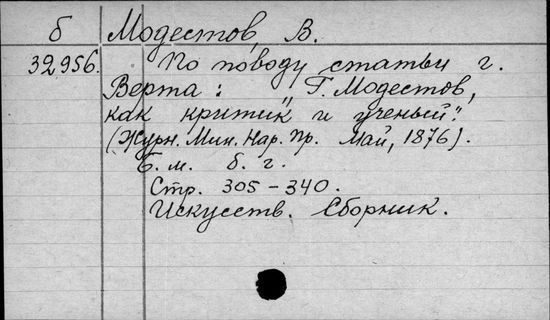 б Модестов, В.
32956. По поводу статьи г.
Верта: „Г. Модестов,
как критик и ученый".
(Журн. Мин. Нар. Пр. Май, 1876).
Б. м. б. г.
Стр. 305-340.
Искусств. Сборник.